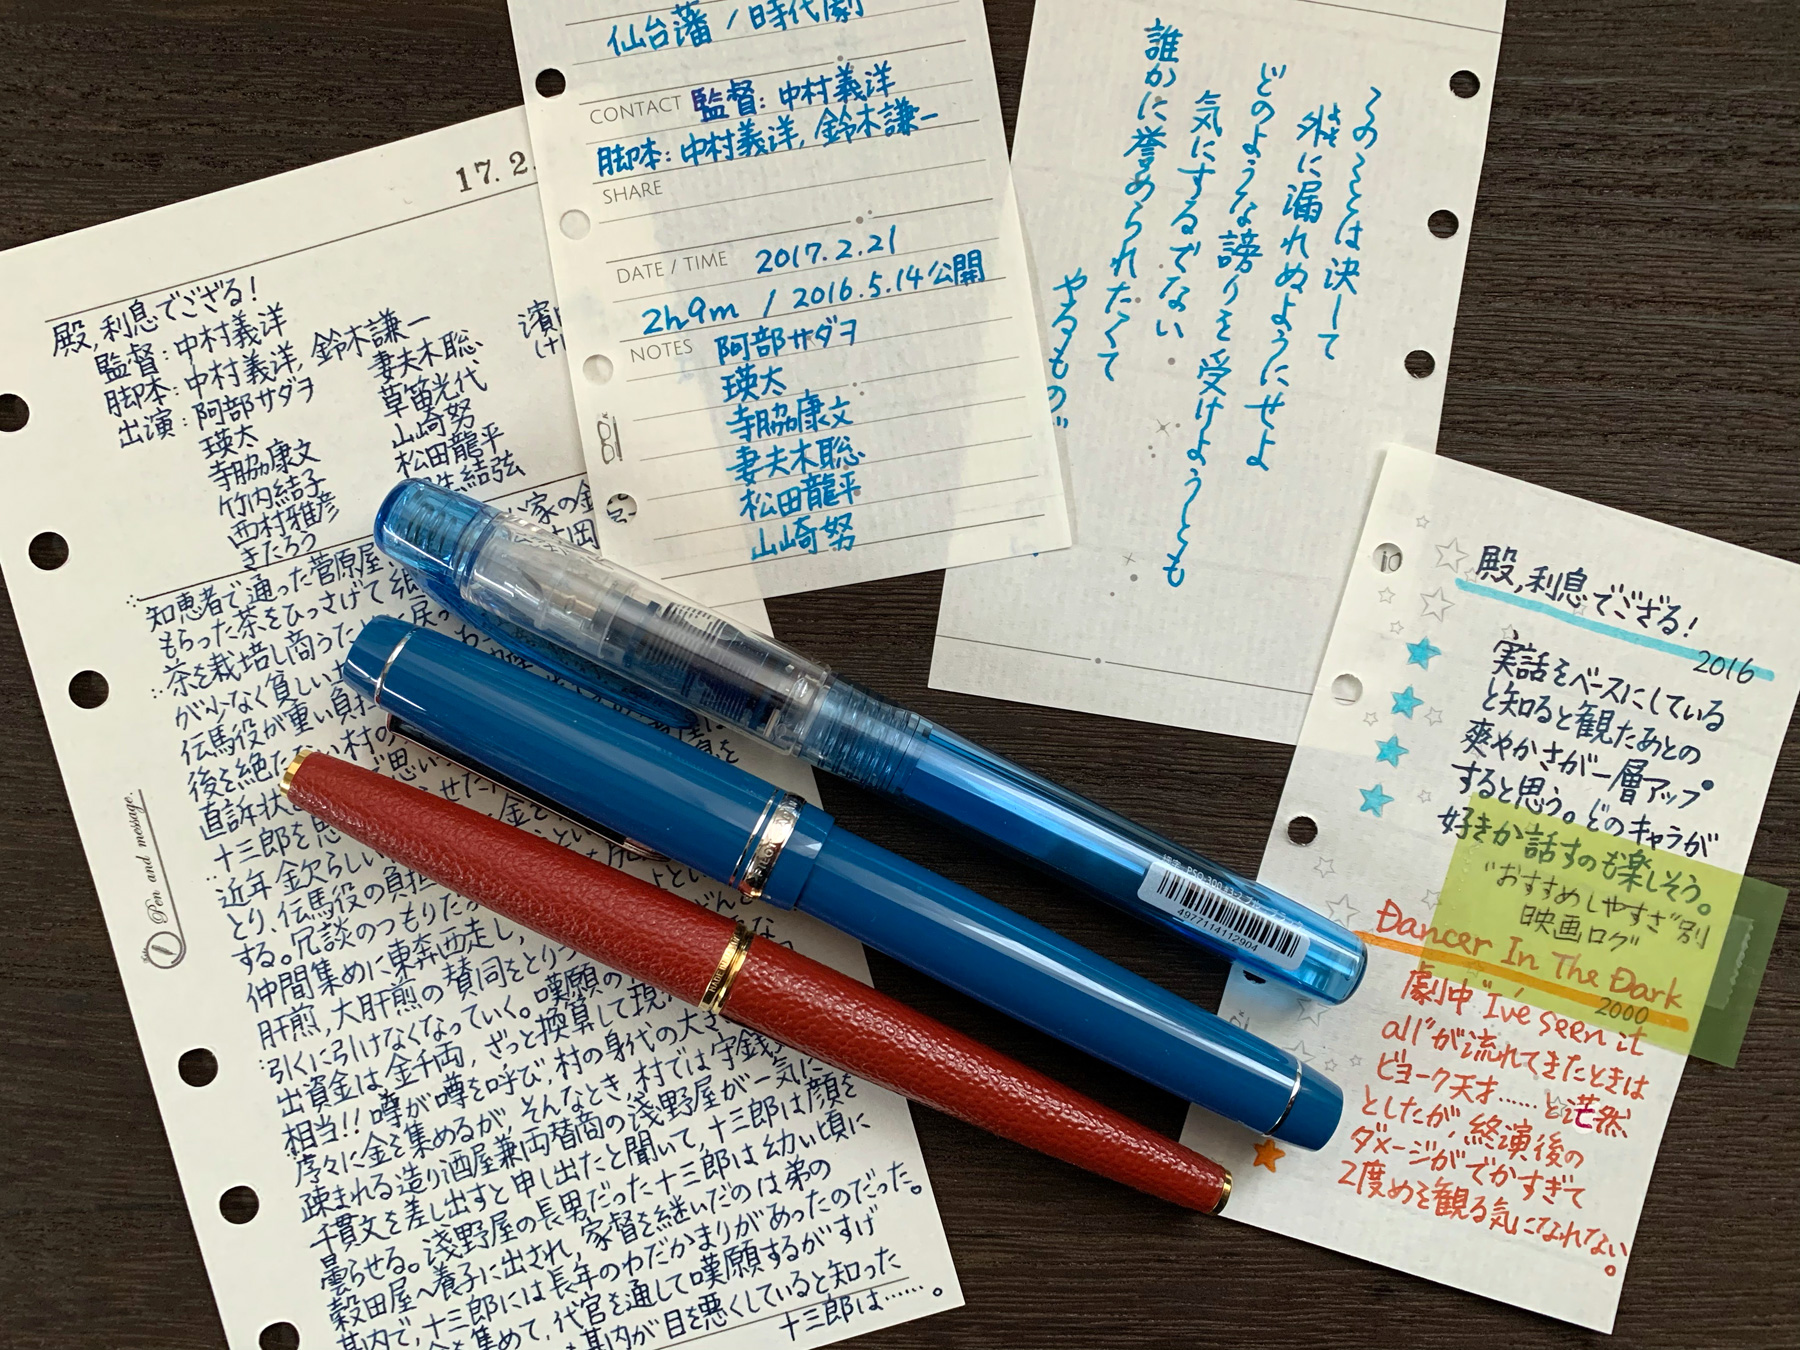 17.2.
殿,利息でござる!
監督:中村義洋
脚本:中村義洋,鈴木謙一
出演:阿部サダヲ
瑛太
寺脇康文
竹内結子
西村雅彦
きたろう
妻夫木聡
草笛光代
山崎努
松田龍平
結弦
知恵者で通った菅原屋
もらった茶をひっさげて
茶を栽培し商うため
が少なく貧しい
伝馬役が重い負担
後を絶たない村の
直訴状
十三郎を思
近年金欠らしい
とり、伝馬役の負担
する。冗談のつもりだ
仲間集めに東奔西走し,
肝煎,大肝煎の賛同をとりつ
引くに引けなくなっていく。嘆願の
出資金は、金千両,ざっと換算して現
相当!!噂が噂を呼び,村の身代の大き
序々に金を集めるが,そんなとき,村では守銭
疎まれる造り酒屋兼両替商の浅野屋が一気に
千貫文を差し出すと申し出たと聞いて,十三郎は顔を
曇らせる。浅野屋の長男だった十三郎は幼い頃に
穀田屋へ養子に出され,家督を継いだのは弟の
甚内で,十三郎には長年のわだかまりがあったのだった。
金を集めて,代官を通して嘆願するがすげ
甚内が目を悪くしていると知った
十三郎は……。
Pen and message.
仙台藩/時代劇
CONTACT 監督:中村義洋
脚本:中村義洋,鈴木謙一
SHARE
DATE / TIME 2017.2.21
2h9m / 2016.5.14公開
NOTES 阿部サダヲ
瑛太
寺脇康文
妻夫木聡
松田龍平
山崎努
このことは決して
外に漏れぬようにせよ
よそ
どのような謗りを受けようとも
気にするでない
誰かに誉められたくて
やるもの
殿,利息でござる!
2016
実話をベースにしている
と知ると観たあとの
爽やかさが一層アップ
すると思う。どのキャラが
好きか話すのも楽しそう。
"おすすめしやすさ"別
映画ログ
Dancer In The Dark
2000
劇中"I've seen it
all"が流れてきたときは
ビョーク天才……と茫然
としたが,終演後の
ダメージがでかすぎて
2度めを観る気になれない。
PILOT
MADE IN
PSQ-300
4977114112904